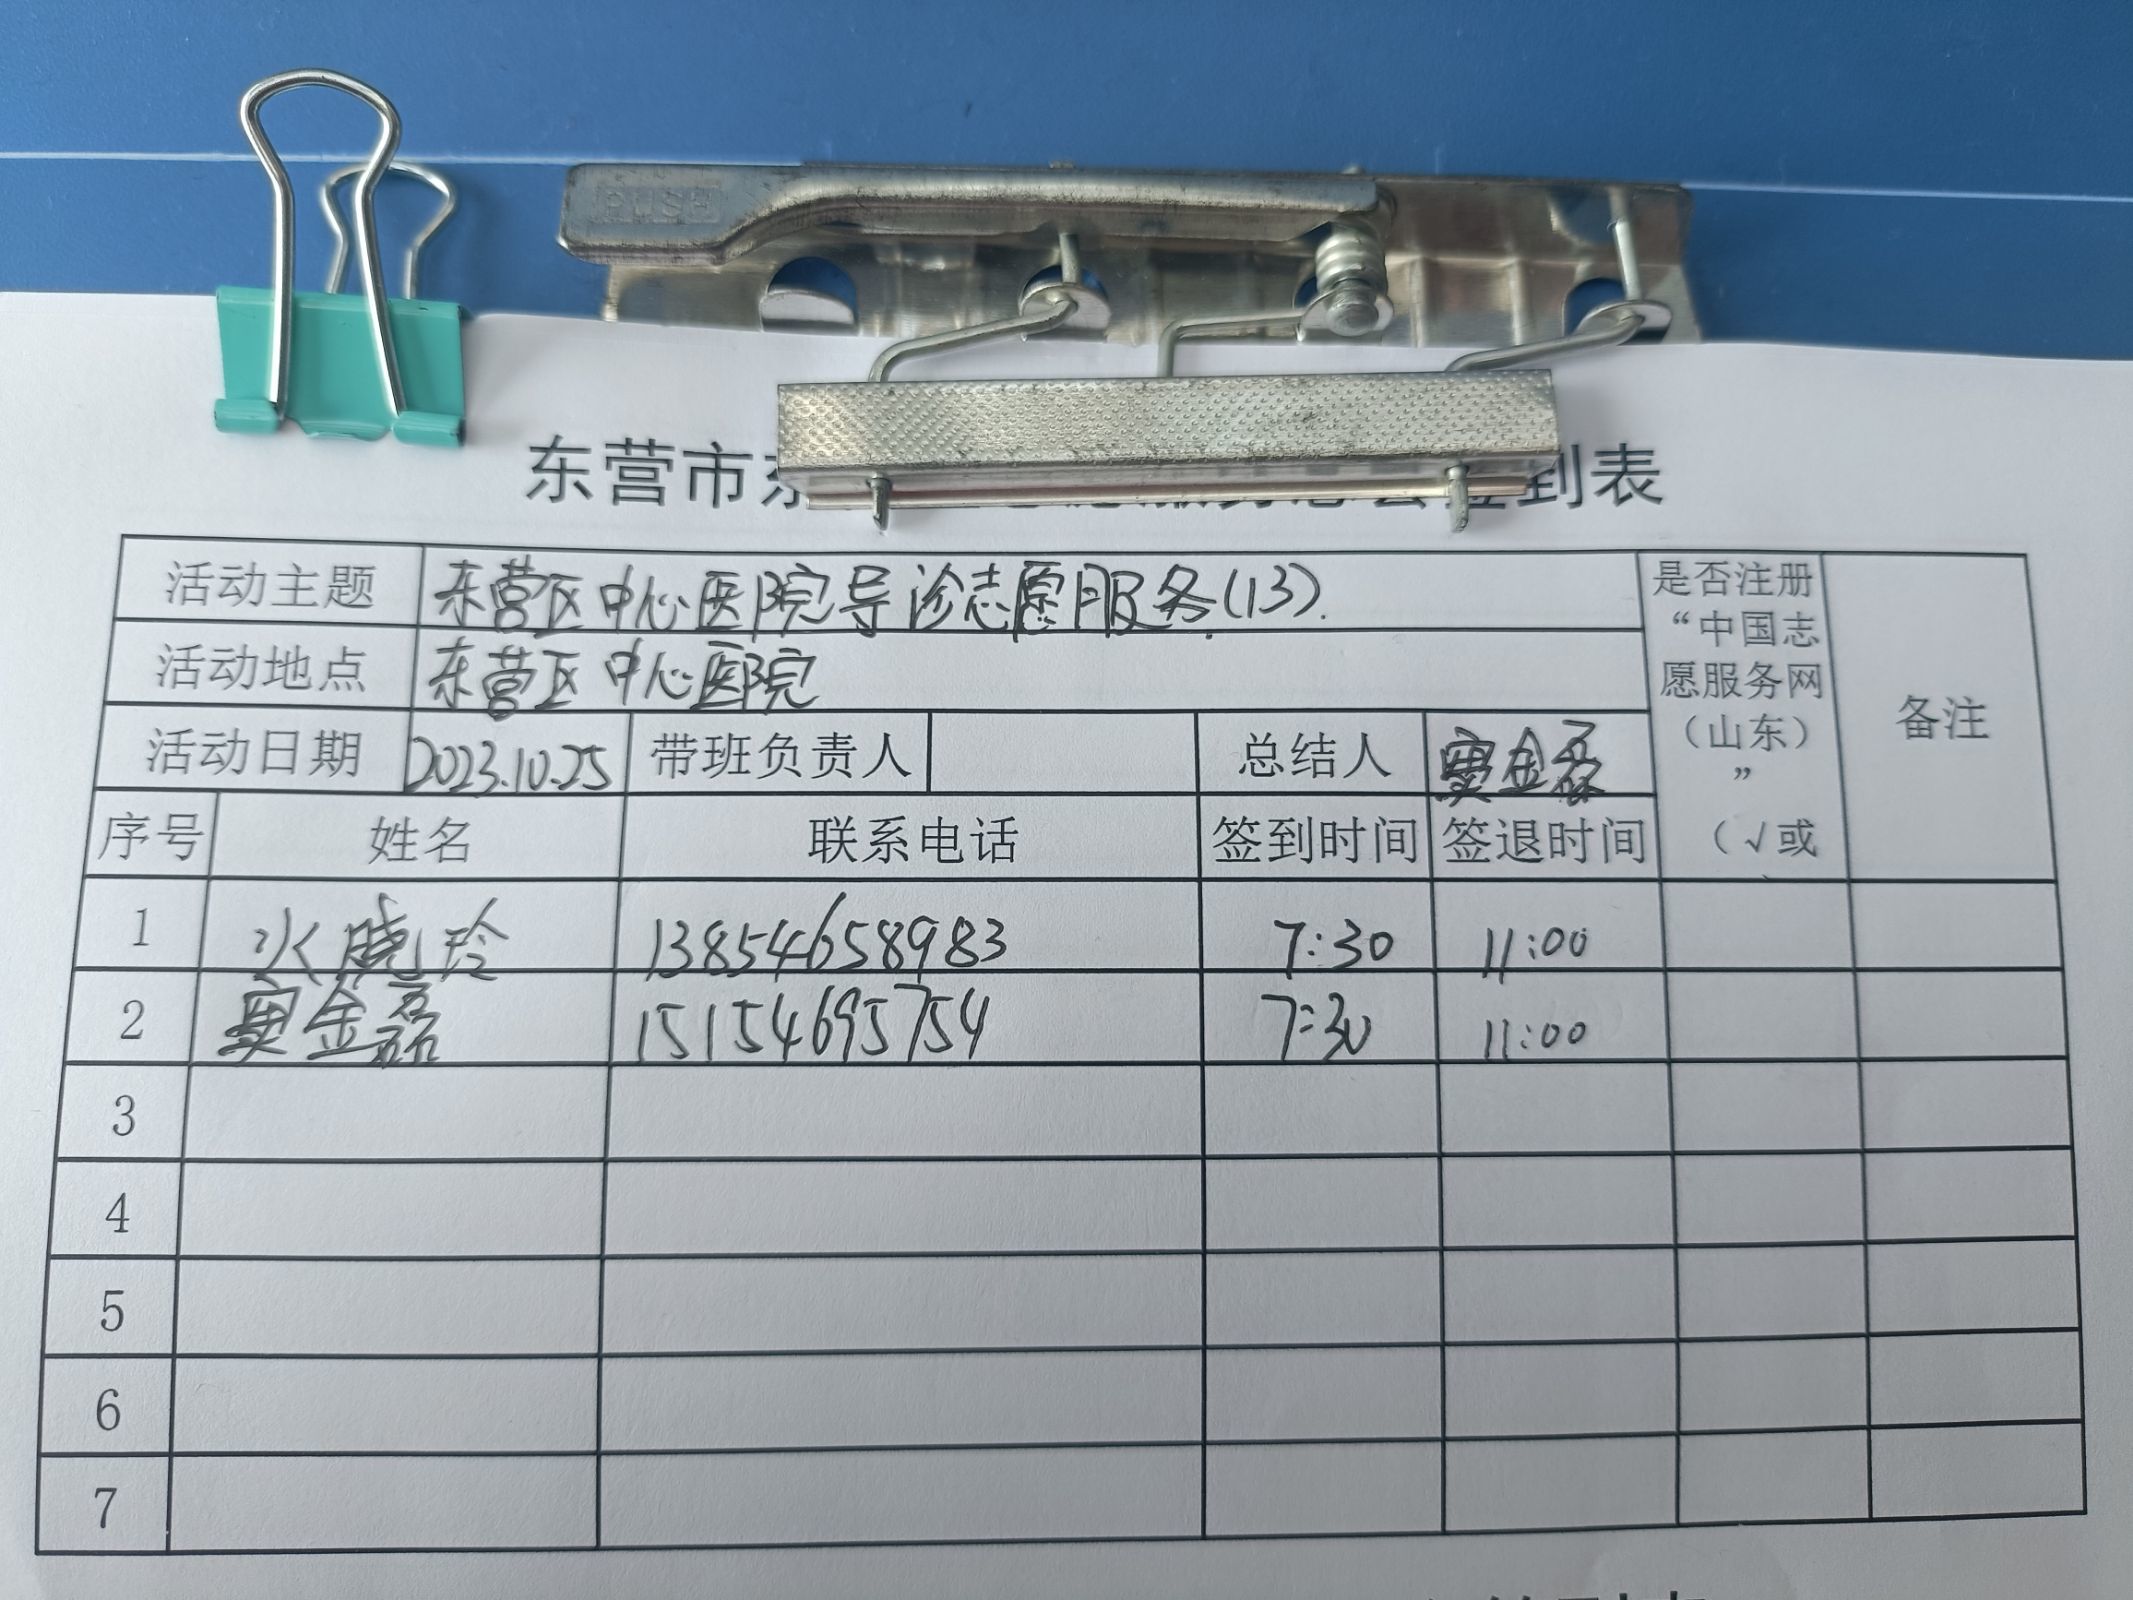 PUSH
东营市东 签到表
活动主题 东营区中心医院导诊志愿服务(13).
活动地点 东营区中心医院
活动日期 2023.10.25 带班负责人 总结人 窦金磊
是否注册
“中国志
愿服务网
（山东）
”
（√或
备注
序号 姓名 联系电话 签到时间 签退时间
1 水晓玲 13854658983 7:30 11:00
2 窦金磊 15154695754 7:30 11:00
3
4
5
6
7